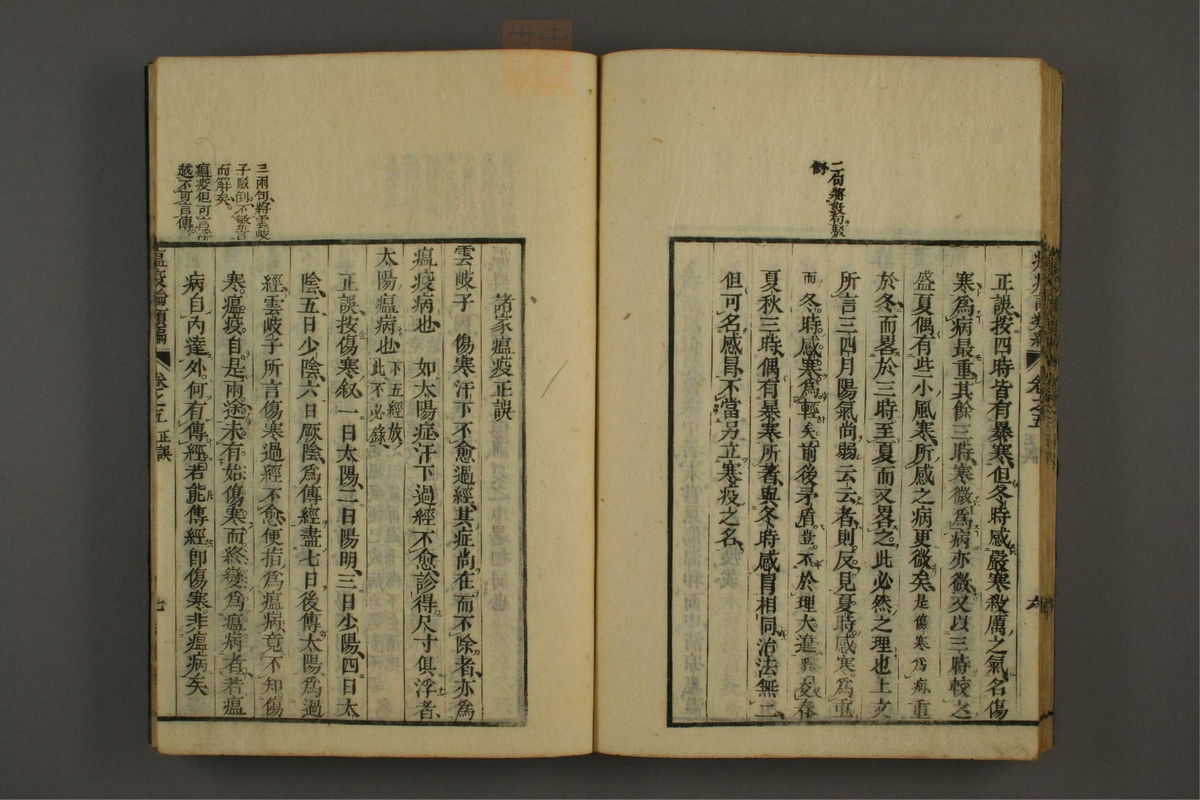 二句將數句駁
倒
正誤按四時皆有暴寒但冬時感嚴寒殺厲之氣名傷
寒為病最重其餘三時寒微為病亦微又以三時較之
盛夏偶有些小風寒所感之病更微矣是傷寒為病重
於冬而畧於三時至夏而又畧之此必然之理也上文
所言三四月陽氣尚弱云云者則反見夏時感寒為重
而冬時感寒為輕矣前後矛盾豈不於理大違
夏秋三時偶有暴寒所著與冬時感冒相同治法無二
但可名感冒不當另立寒疫之名
卷之五
六
三兩句將雲岐
子駁倒不繁言
而解矣
瘟疫但可言
越不可言傳
諸家瘟疫正誤
雲岐子 傷寒汗下不愈過經其症尚在而不除者亦為
瘟疫病也 如太陽症汗下過經不愈診得尺寸俱浮者
太陽瘟病也下五經放此不必錄
正誤按傷寒敘一日太陽二日陽明三日少陽四日太
陰五日少陰六日厥陰為傳經盡七日後傳太陽為過
經雲岐子所言傷寒過經不愈便指為瘟病竟不知傷
寒瘟疫自是兩途未有始傷寒而終變為瘟病者若瘟
病自內達外何有傳經若能傳經即傷寒非瘟病矣
瘟疫論類編 卷之五 正誤
七